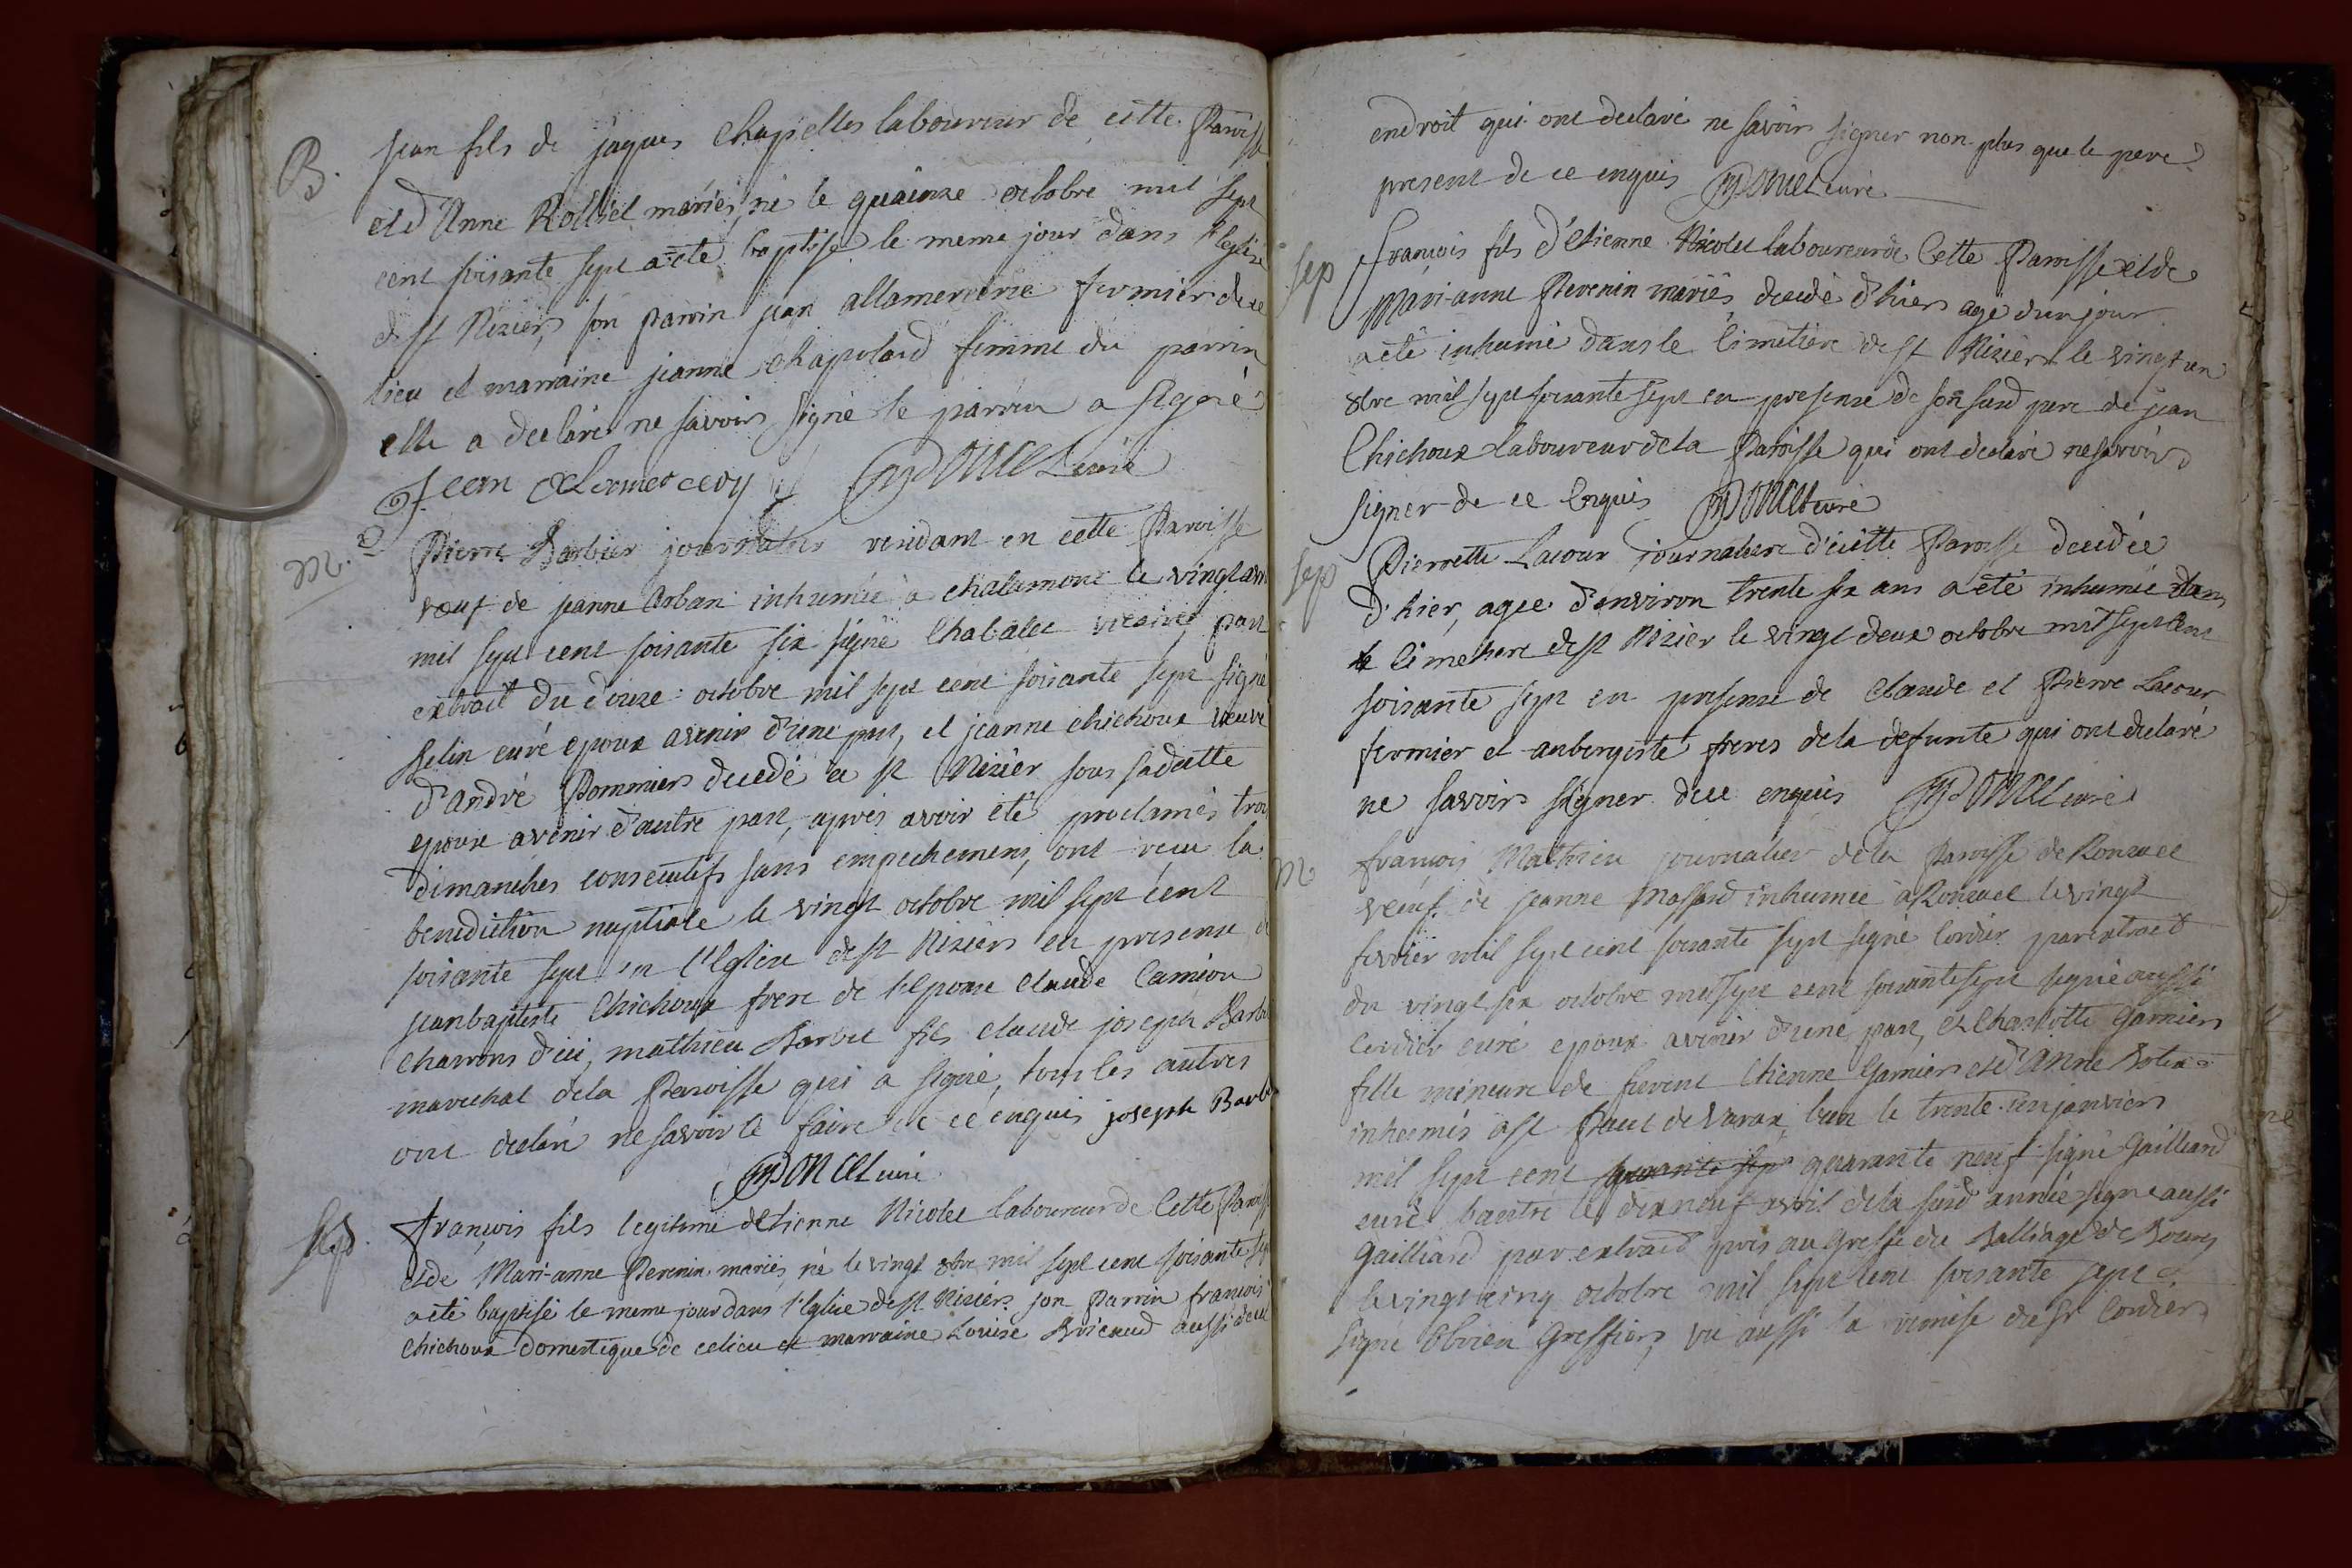 B. jean fils de jaques Chapelles laboureur de cette Paroisse
et d'Anne Rolliet mariés, né le quainze octobre mil sept
cent soisante sept a été baptisé le meme jour dans l'Eglise
de st Nizier, son parrin jean fermier de ce
lieu et marraine jeanne Chapolard femme du parrin
elle a declaré ne savoir signé le parrin a signé
Jean curé
M. Pierre Barbier journalier residant en cette Paroisse
veuf de jeanne Arban inhumée à Chalamont le vingt
mil sept cent soisante six signé Chabalet vicaire, par
extrait du douze octobre mil sept cent soisante sept signé
Belin curé epoux avenir d'une part, et jeanne Chichoux veuve
d'andré Pommier decedé a st Nizier sous sa datte
epouse avenir d'autre part, apres avoir été proclamés trois
dimanches consecutifs sans empechement, ont reçu la
benediction nuptiale le vingt octobre mil sept cent
soisante sept en l'Eglise de st Nizier en presence de
jean baptiste Chichoux frere de l'Epouse Claude Camion
Charrons d'ici, mathieu Barbet fils claude joseph Barbet
marechal de la Paroisse qui a signé, tous les autres
ont declaré ne savoir le faire de ce enquis joseph Barbet
curé
François fils legitime d'Etienne Nicolet Laboureur de Cette Paroisse
et de Mari-anne Perenin mariés, né le vingt 8bre mil sept cent soisante sept
a été baptisé le meme jour dans l'Eglise de st Nizier son Parrin françois
Chichoux domestique de ce lieu et marraine Louise Bricaud aussi de cet
endroit qui ont declaré ne savoir signer non plus que le pere
present de ce enquis curé
sep François fils d'Etienne Nicolet laboureur de Cette Paroisse et de
Mari-anne Perenin mariés decedé d'hier agé d'un jour
a été inhumé dans le Cimetiere de st Nizier le vingt un
8bre mil sept soisante sept en presence de son susd pere de jean
Chichoux Laboureur de la Paroisse qui ont declaré ne savoir
signer de ce Enquis curé
sep Pierrette Lacour journaliere d'cette Paroisse decedée
d'hier, agée d'environ trente six ans a été inhumée dans
le Cimetiere de st Nizier le vingt deux octobre mil sept Cent
soisante sept en presence de Claude et Pierre Lacour
fermier et aubergiste freres de la defunte qui ont declaré
ne savoir signer de ce enquis curé
M françois Mathieu journalier de la Paroisse de Ronzuel
veuf de jeanne Massard inhumée à Ronzuel le vingt
fevrier mil sept cent soisante sept signé Cordier par extrait
du vingt six octobre mil sept cent soisante sept signé aussi
Cordier curé epoux avenir d'une part, et Charlotte Garnier
fille mineure de fuerent Etienne Garnier et d'anne
inhumés a st Paul de Varax, l'un le trente un janvier
mil sept cent quarante neuf signé Gailliard
curé l'autre le dix neuf avril de la susd année signé aussi
Gailliard par extrait pris au Greffe du Balliage de Bourg
le vingt cinq octobre mil sept cent soisante sept
signé Greffier, vu aussi la remise du Sr Cordier